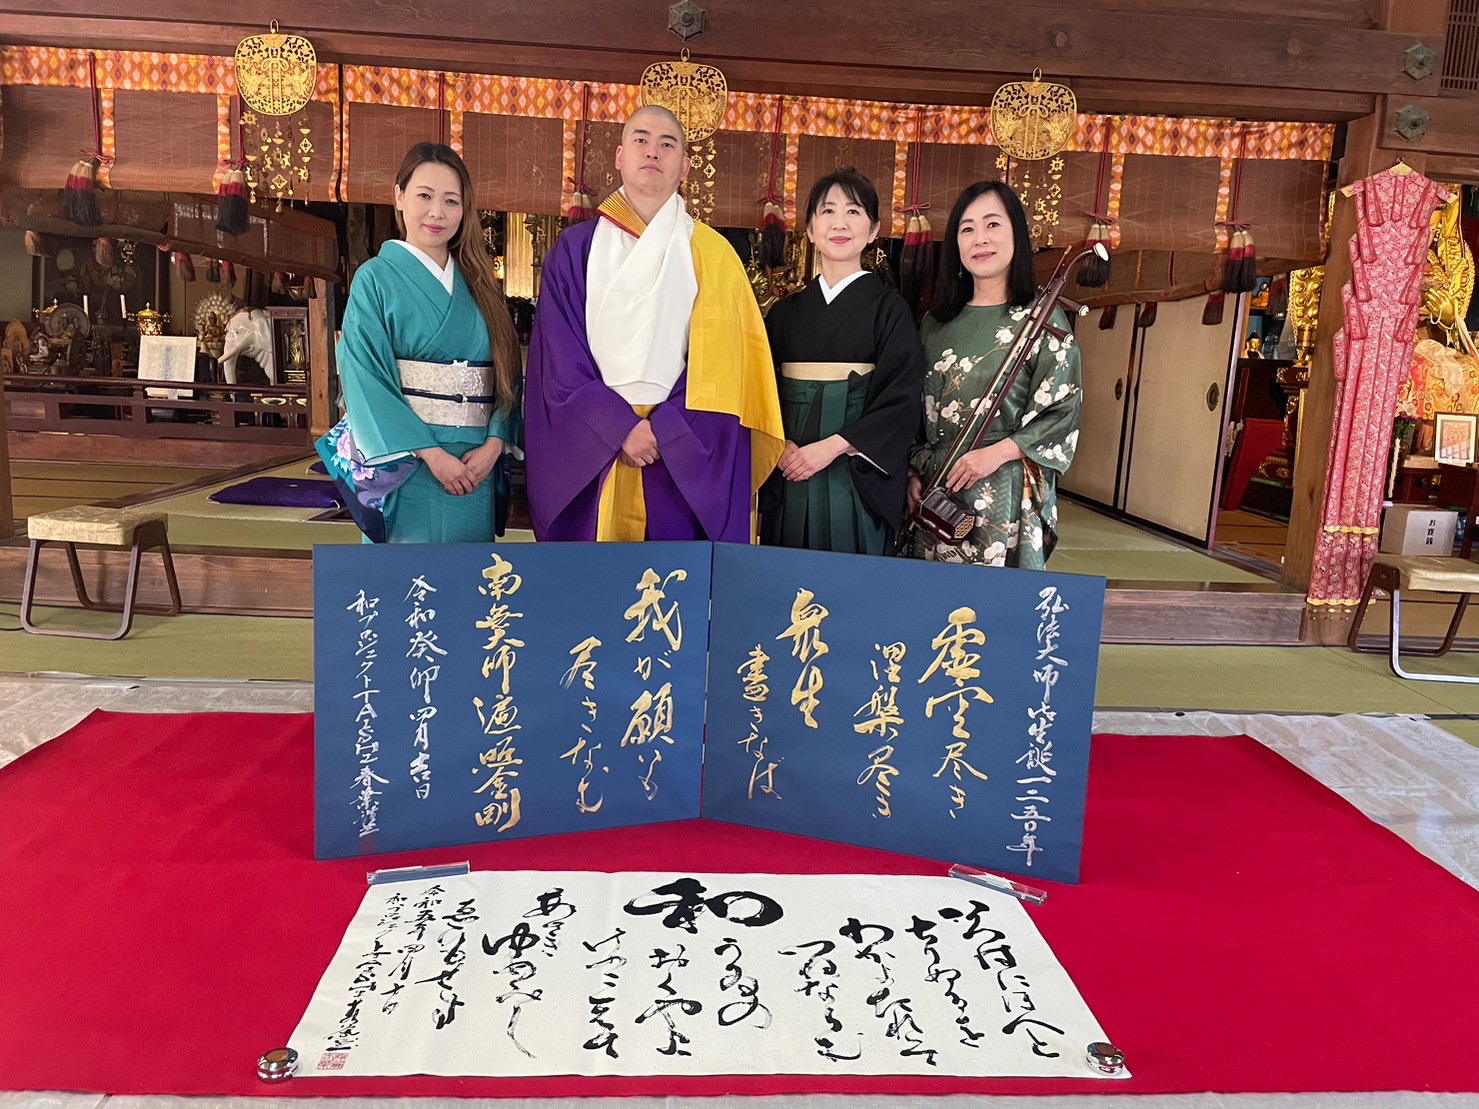 弘法大師御生誕一二五〇年
虚空尽き
涅槃尽き
衆生
盡きなば
我が願いも
尽きなむ
南無大師遍照金剛
令和癸卯四月吉日
和プロジェクトTAISHI
いろはにほへと
ちりぬるを
わかよたれそ
つねならむ
和
うゐの
おくやま
けふこえて
あさき
ゆめみし
ゑひもせす
令和五年四月十日
お賽銭